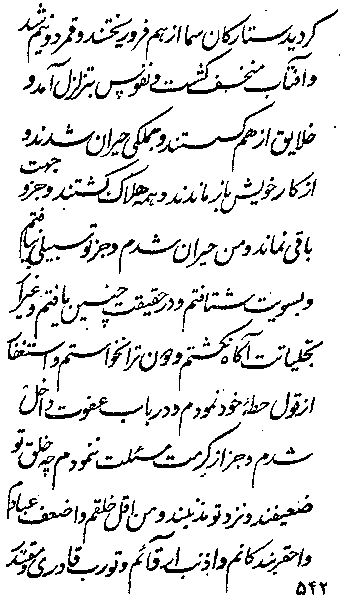 گردید ستارگان سما از هم فرو ریختند و قمر دو نیم شد
و آفتاب منخسف گشت و نفوس بتزلزل آمد و
خلایق از هم گسستند و جملگی حیران شدند و
از کار خویش باز ماندند و همه هلاک گشتند و جز وجهت
باقی نماند و من حیران شدم و جز تو سبیلی نیافتم
و بسویت شتافتم و در حقیقت چنین یافتم و غیر از
تجلیاتت آگاه نگشتم و چون ترا خواستم و استغفار
از قول خطهٔ خود نمودم و در باب عفوت داخل
شدم و جز از کرمت مسئلت ننمودم چه خلق تو
ضعیفند و نزد تو مذنبند و من اقل خلقم و اضعف عبادم
و احقر بندگانم و اذنب ارقائم و تو رب قادری و مقتدر
۵۴۲